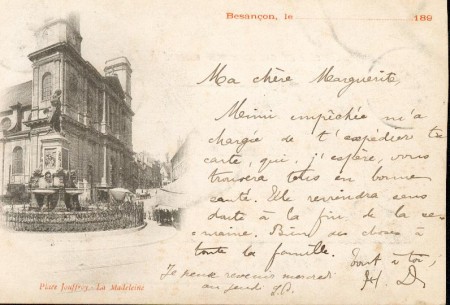 Besançon, le 189
Ma chère Marguerite,
Mimi empêchée m'a
chargée de t'expédier ta
carte, qui, j'espère, vous
trouvera tous en bonne
santé. Elle reviendra sans
doute à la fin de la se-
maine. Bien des choses à
toute la famille.
Tout à toi,
H. D.
Je pense revenir mercredi
ou jeudi J.D.
Place Jouffroy. La Madeleine